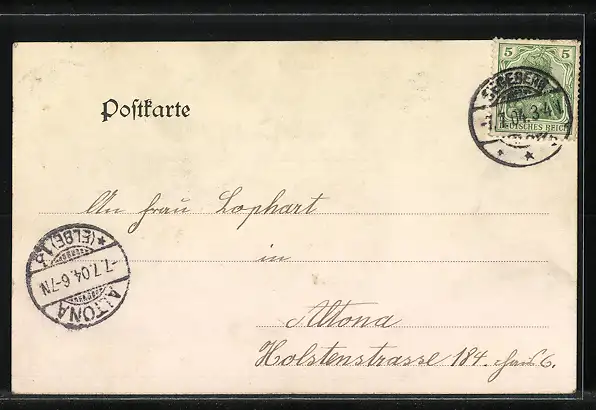 Postkarte
5 5
SEGEBERG
7.7.04. 3-4 N
DEUTSCHES REICH
An Frau Lophart
in
Altona
Holstenstrasse 184. Haus 6.
ALTONA
7.7.04. 6-7N
* (ELBE) 1